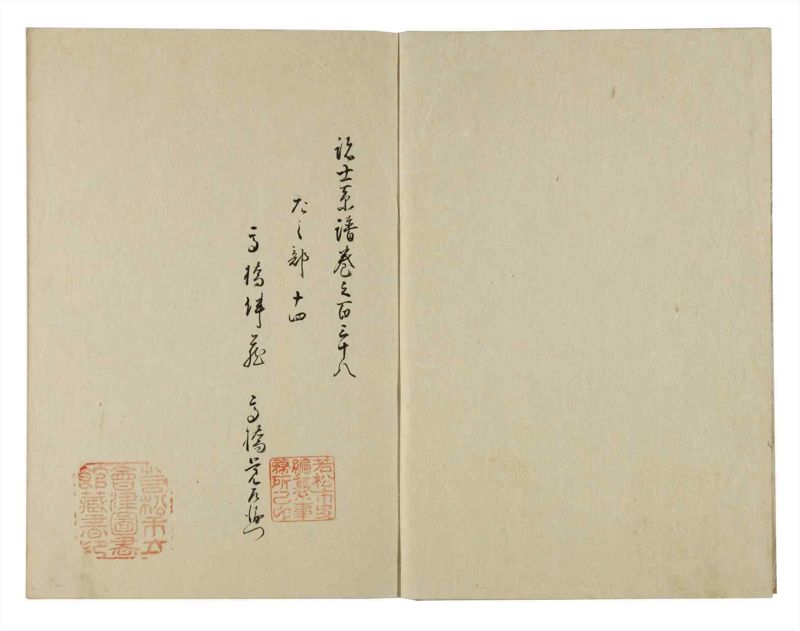 諸士系譜巻之百三十八
た之部 十四
高橋伴蔵 高橋覚左衛門
若松市史
編纂事
務所之印
若松市立
會津圖書
館藏書印